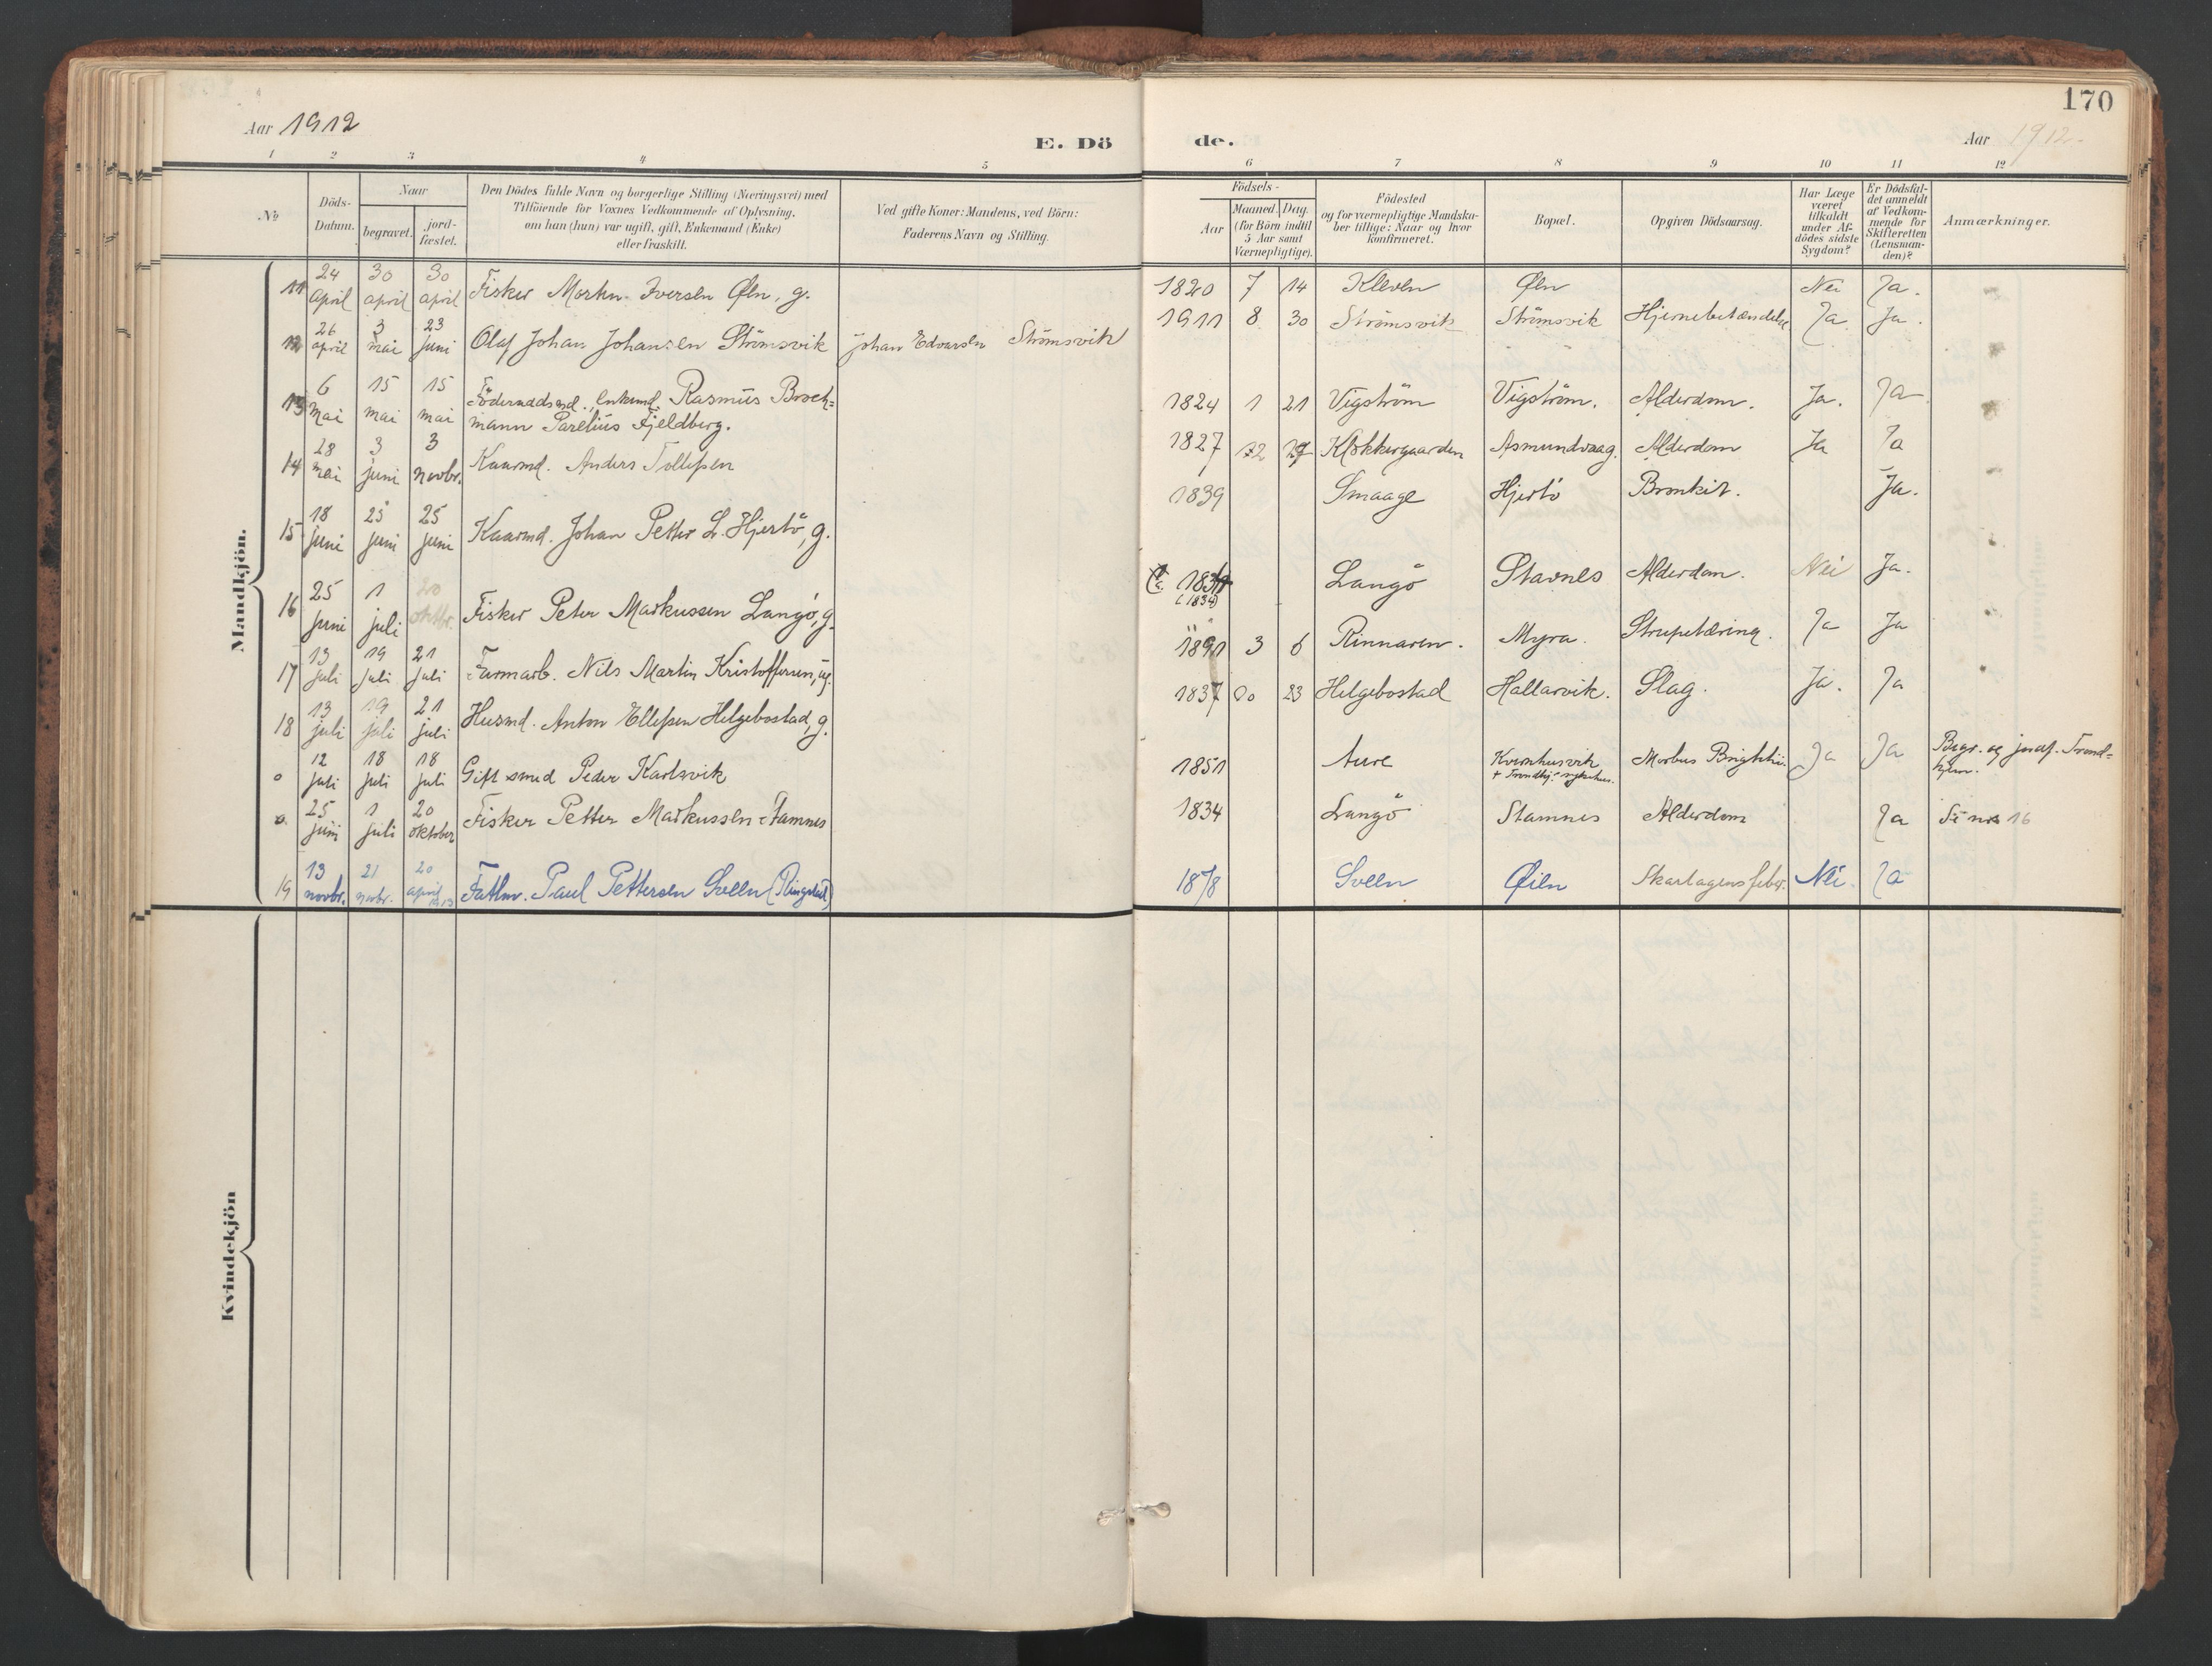 170
Aar 1912
E. Dö
de.
Aar 1912.
1 2 3 4 5 6 7 8 9 10 11 12
No
Döds-
Datum.
Naar
begravet.
jord-
fæstet.
Den Dödes fulde Navn og borgerlige Stilling (Næringsvei) med
Tilföiende for Voxnes Vedkommende af Oplysning,
om han (hun) var ugift, gift, Enkemand (Enke)
eller fraskilt.
Ved gifte Koner: Mandens, ved Börn:
Faderens Navn og Stilling.
Födsels-
Aar
Maaned. Dag.
(for Börn indtil
5 Aar samt
Værnepligtige).
Födested
og for værnepligtige Mandska-
ber tillige: Naar og hvor
konfirmeret.
Bopæl.
Opgiven Dödsaarsag.
Har Læge
været
tilkaldt
under Af-
dödes sidste
Sygdom?
Er Dödsfal-
det anmeldt
af Vedkom-
mende for
Skifteretten
(Lensman-
den)?
Anmærkninger.
Mandkjön.
11 24 april 30 april 30 april Fisker Morten Iversen Øen, g. 1820 7 14 Kleven Øen Nei Ja.
12 26 april 3 mai 23 juni Olaf Johan Johansen Strömsvik Johan Edvarsen Strömsvik 1911 8 30 Strömsvik Strömsvik Hjernebetændelse Ja Ja.
13 6 mai 15 mai 15 mai Föderaadsmd. Enkemd. Rasmus Brock=
mann Parelius Fjeldberg. 1824 1 21 Vigström Vigström. Alderdom. Ja. Ja
14 28 mai 3 juni 3 novbr. Kaarmd. Anders Tollefsen 1827 12 29 Klokkergaarden Asmundvaag. Alderdom Ja Ja
15 18 juni 25 juni 25 juni Kaarmd. Johan Petter L. Hjertö, g. 1839 Smaage Hjertö Bronkit. Ja.
16 25 juni 1 juli 20 oktbr. Fisker Peter Markussen Langö, g. (1834) Langö Stavnes Alderdom. Nei Ja.
17 13 juli 19 juli 21 juli Farmarb. Nils Martin Kristoffersen, ug. 1891 3 6 Rinnaren. Myra. Strupetæring. Ja Ja
18 13 juli 19 juli 21 juli Husmd. Anton Ellefsen Helgebostad, g. 1837 23 Helgebostad Hallarvik. Slag. Ja. Ja
o 12 juli 18 juli 18 juli Gift smed Peder Karlsvik 1851 Aure Kvernhusvik
+ Trondhj. sykehus. Morbus Brightii Ja Ja Begr. og jordf. Trond=
hjem.
o. 25 juni 1 juli 20 oktober Fisker Petter Markussen Stamnes 1834 Langö Stamnes Alderdom Ja Se no 16
19 13 novbr. 21 novbr. 20 april 1913 Fattlm. Paul Pettersen Sveen (Ringstad) 1878 Sveen Øien Skarlagensfeber. Nei. Ja
Kvindekjön